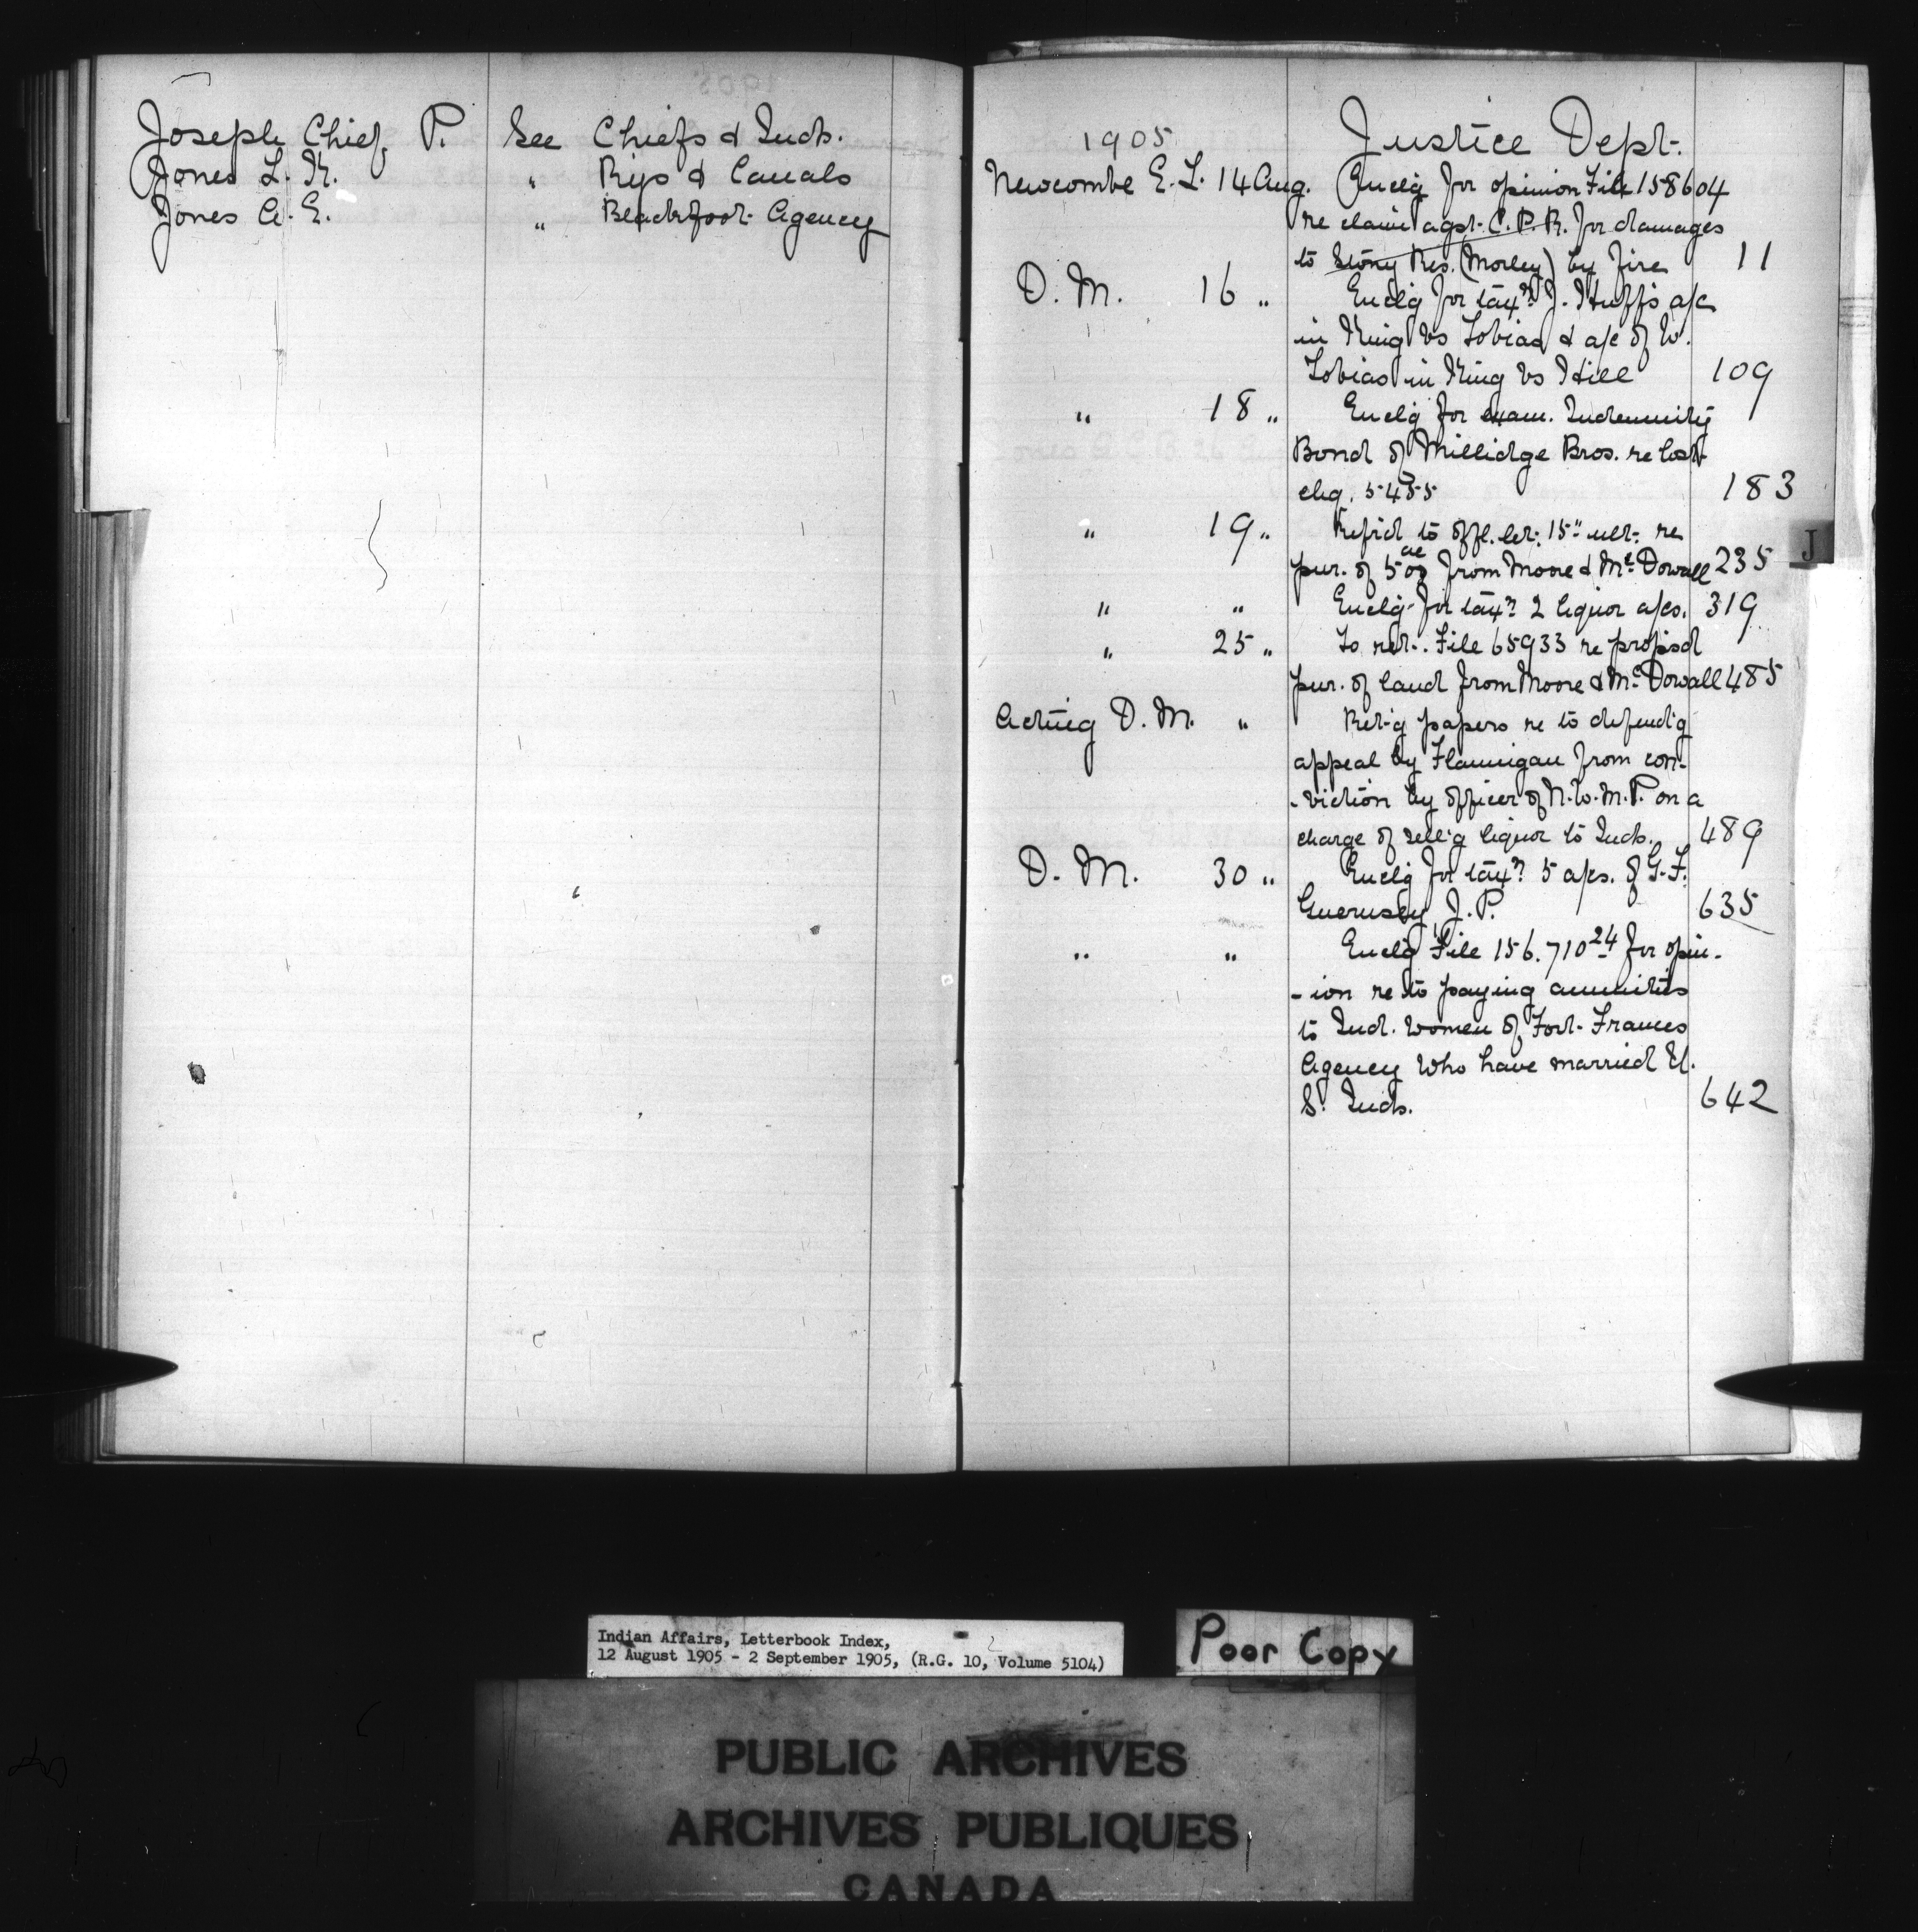 Joseph Chief, P. See Chiefs & Inds.
Jones L. K. " Rys & Canals
Jones A. E. " Blackfoot Agency
1905 Justice Dept.
Newcombe E. L. 14 Aug. Enclg for opinion File 158604
re claim agst. C. P. R. for damages
to Stony Res. (Morley) by fire 11
D. M. 16 " Enclg for taxn J. Huff's a/c
in King vs Tobias & a/c of W.
Tobias in King vs Hill 109
" 18 " Enclg for exam. Indemnity
Bond of Millidge Bros. re lost
chq. 5455 183
" 19 " Refrd to offl. let. 15" ult. re
pur. of 500 ac from Moore & McDowall 235
" " Enclg for taxn 2 liquor a/cs. 319
" 25 " To ret. File 65933 re propsd
pur. of land from Moore & McDowall 485
Acting D. M. " Ret-g papers re to defend'g
appeal by Flannigan from con-
-viction by officer of N. W. M. P. on a
charge of sell'g liquor to Inds. 489
D. M. 30 " Enclg for taxn 5 a/cs. of G. F.
Guernsey J. P. 635
" " Enclg File 156.710 24 for opin-
-ion re to paying annuities
to Ind. women of Fort Frances
Agency who have married U.
S. Inds. 642
J
Indian Affairs, Letterbook Index,
12 August 1905 - 2 September 1905, (R.G. 10, Volume 5104)
Poor Copy
PUBLIC ARCHIVES
ARCHIVES PUBLIQUES
CANADA